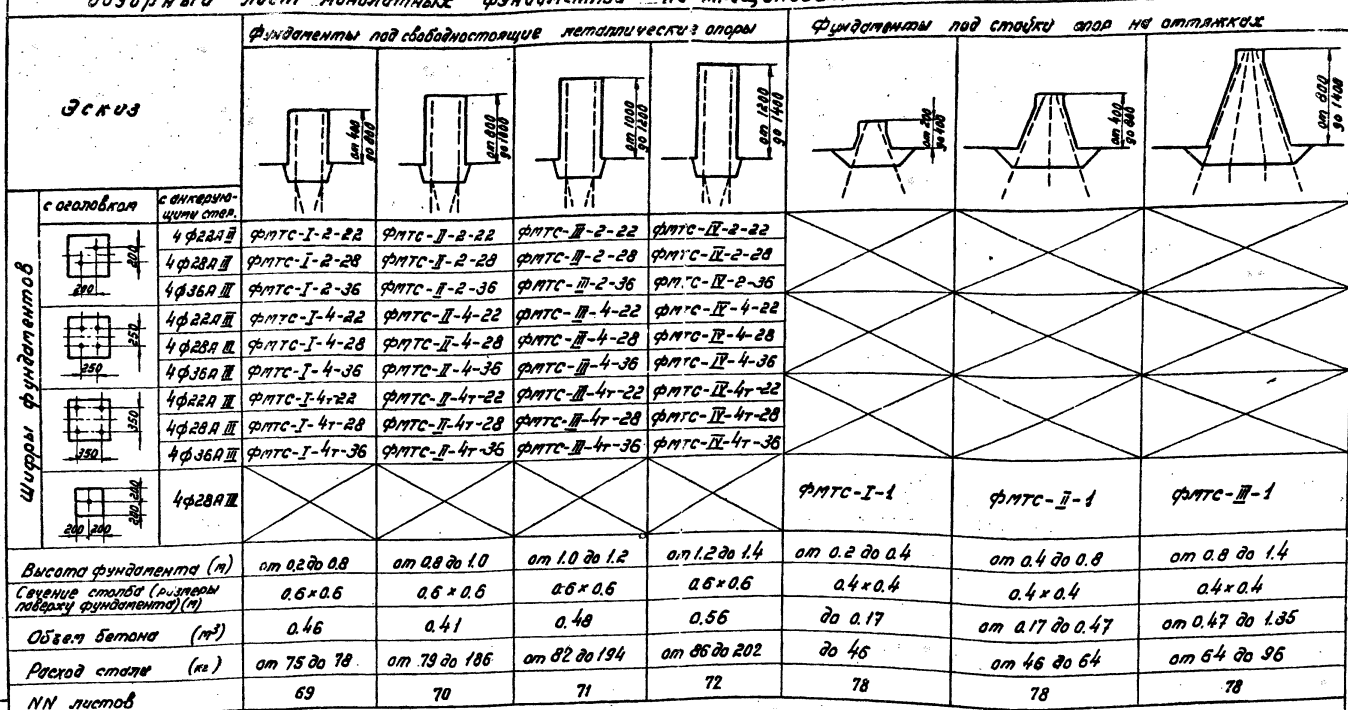 Обзорный лист монолитных фундаментов
Фундаменты под свободностоящие металлические опоры
Фундаменты под стойки опор на оттяжках
Эскиз
от 800 до 1000
от 1000 до 1200
от 1200 до 1400
от 200 до 400
от 400 до 800
от 800 до 1400
Шифры фундаментов
с оголовком
с анкерую-
щими стер.
200 200
4ф22АIII ФМТС-I-2-22 ФМТС-II-2-22 ФМТС-III-2-22 ФМТС-IV-2-22
4ф28АIII ФМТС-I-2-28 ФМТС-II-2-28 ФМТС-III-2-28 ФМТС-IV-2-28
4ф36АIII ФМТС-I-2-36 ФМТС-II-2-36 ФМТС-III-2-36 ФМТС-IV-2-36
250 250
4ф22АIII ФМТС-I-4-22 ФМТС-II-4-22 ФМТС-III-4-22 ФМТС-IV-4-22
4ф28АIII ФМТС-I-4-28 ФМТС-II-4-28 ФМТС-III-4-28 ФМТС-IV-4-28
4ф36АIII ФМТС-I-4-36 ФМТС-II-4-36 ФМТС-III-4-36 ФМТС-IV-4-36
350 350
4ф22АIII ФМТС-I-4т-22 ФМТС-II-4т-22 ФМТС-III-4т-22 ФМТС-IV-4т-22
4ф28АIII ФМТС-I-4т-28 ФМТС-II-4т-28 ФМТС-III-4т-28 ФМТС-IV-4т-28
4ф36АIII ФМТС-I-4т-36 ФМТС-II-4т-36 ФМТС-III-4т-36 ФМТС-IV-4т-36
200 200 200 200
4ф28АIII ФМТС-I-1 ФМТС-II-1 ФМТС-III-1
Высота фундамента (м) от 0.2 до 0.8 от 0.8 до 1.0 от 1.0 до 1.2 от 1.2 до 1.4 от 0.2 до 0.4 от 0.4 до 0.8 от 0.8 до 1.4
Сечение столба (размеры
поверху фундамента) (м) 0.6×0.6 0.6×0.6 0.6×0.6 0.6×0.6 0.4×0.4 0.4×0.4 0.4×0.4
Объем бетона (м³) 0.46 0.41 0.48 0.56 до 0.17 от 0.17 до 0.47 от 0.47 до 1.35
Расход стали (кг) от 75 до 78 от 79 до 186 от 82 до 194 от 86 до 202 до 46 от 46 до 64 от 64 до 96
NN листов 69 70 71 72 78 78 78